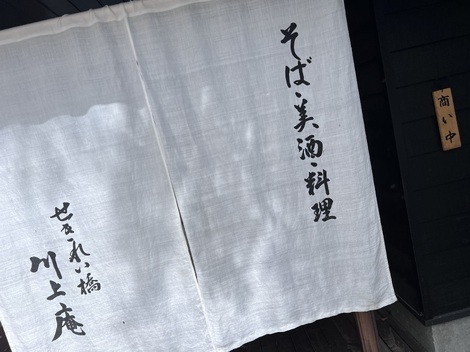 商い中
そば・美酒・料理
せきれい橋
川上庵